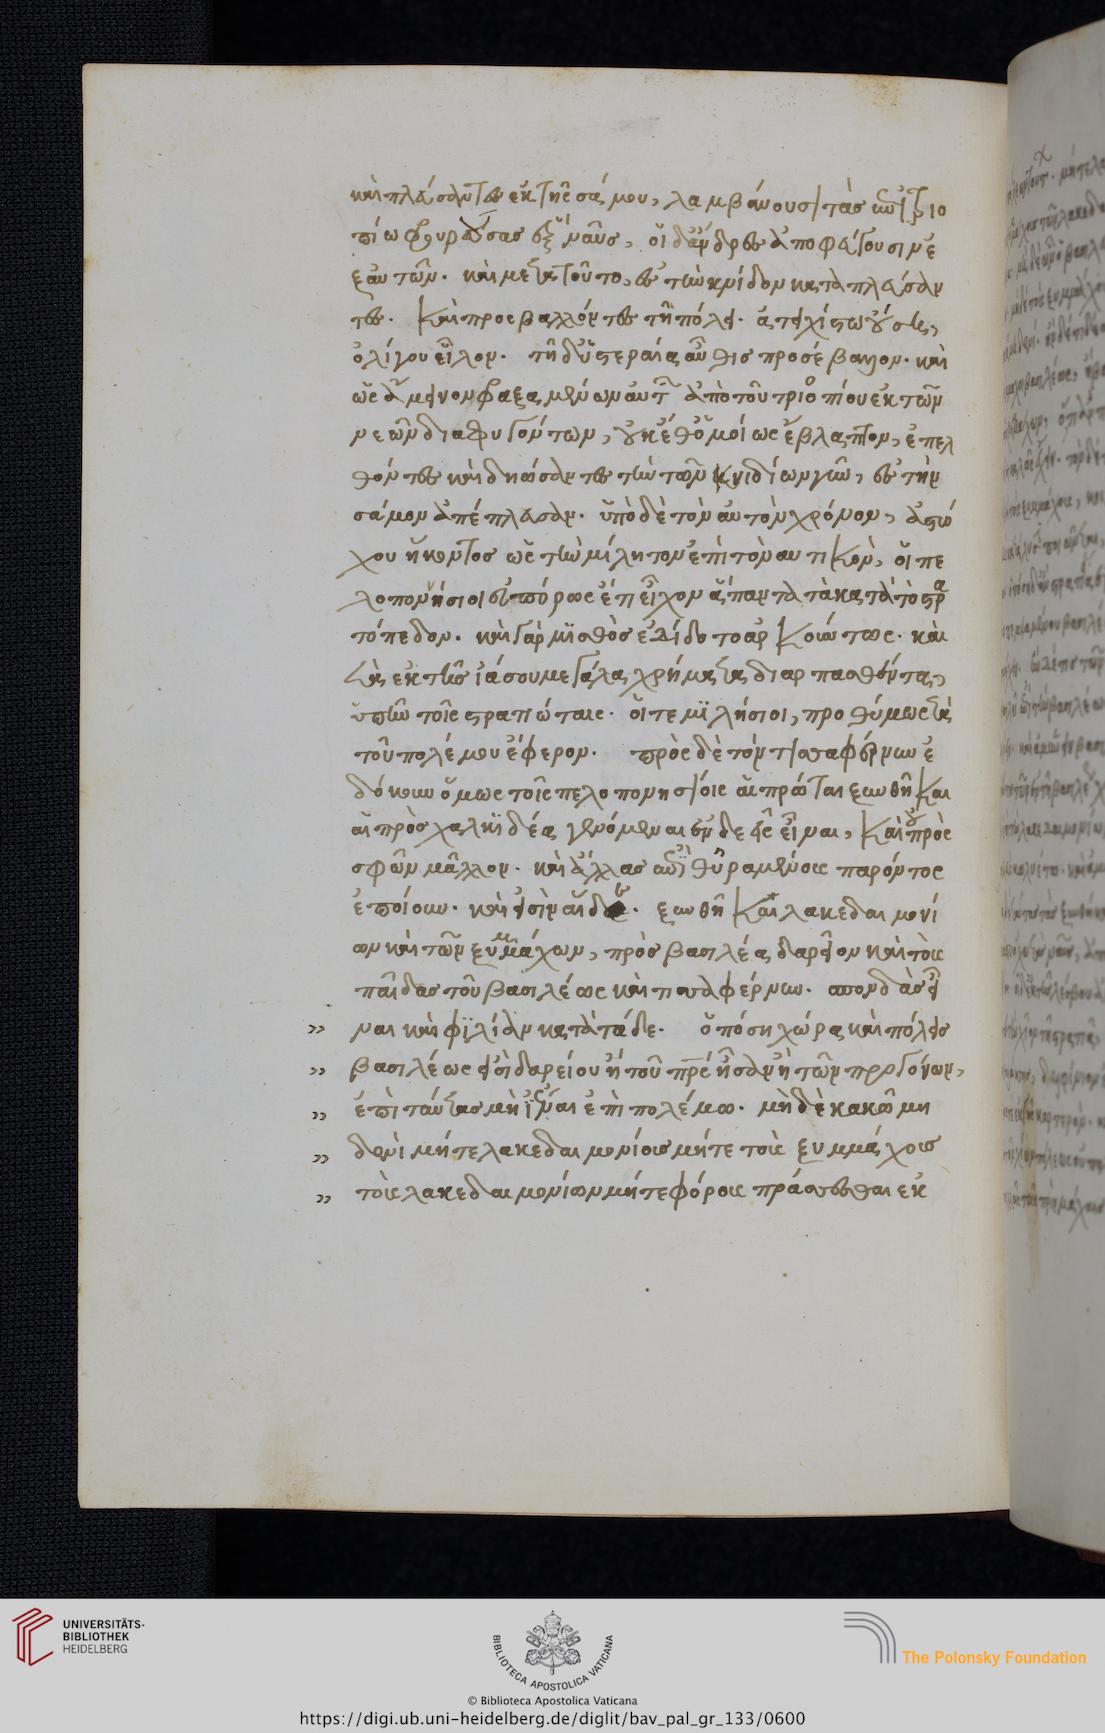 καὶ πλεύσαντες ἐκ τῆς σάμου, λαμβάνουσι τὰς ἐπὶ τῷ τριο
πίῳ φρουρούσας ἓξ ναῦς, οἱ δ' ἄνδρες ἀποφεύγουσιν ἐ
ξ αὐτῶν. καὶ μετὰ τοῦτο, ἐς τὴν κνίδον καταπλεύσαν
τες. καὶ προσβαλλόντες τῇ πόλει. ἀτειχίστῳ οὔσῃ,
ὀλίγου εἷλον. τῇ δ' ὑστεραίᾳ αὖθις προσέβαλλον. καὶ
ὡς ἄμεινον φαξαμένων αὐτῶν ἀπὸ τοῦ τριοπίου ἐκ τῶν
νεῶν διαφυγόντων, οὐκέθ' ὁμοίως ἔβλαπτον, ἐπελ
θόντες καὶ δῃώσαντες τὴν τῶν κνιδίων γῆν, ἐς τὴν
σάμον ἀπέπλευσαν. ὑπὸ δὲ τὸν αὐτὸν χρόνον, ἀστυό
χου ἥκοντος ὡς τὴν μίλητον ἐπὶ τὸ ναυτικὸν, οἱ πε
λοπονήσιοι εὐπόρως ἔτι εἶχον ἅπαντα τὰ κατὰ τὸ στρα
τόπεδον. καὶ γὰρ μισθὸς ἐδίδοτο ἀρκούντως. καὶ
τὰ ἐκ τῆς ἰάσου μεγάλα χρήματα διαρπασθέντα,
ὑπῆν τοῖς στρατιώταις. οἵ τε μιλήσιοι, προθύμως τὰ
τοῦ πολέμου ἔφερον. πρὸς δὲ τὸν τισσαφέρνην ἐ
δόκουν ὅμως τοῖς πελοπονησίοις αἱ πρῶται ξυνθῆκαι
αἱ πρὸς χαλκιδέα γενόμεναι ἐνδεεῖς εἶναι, καὶ οὐ πρὸς
σφῶν μᾶλλον. καὶ ἄλλας ἔτι θηραμένους παρόντος
ἐποίουν. καὶ εἰσὶν αἵδε. ξυνθῆκαι λακεδαιμονί
ων καὶ τῶν ξυμμάχων, πρὸς βασιλέα δαρεῖον καὶ τοὺς
παῖδας τοῦ βασιλέως καὶ τισσαφέρνην. σπονδὰς εἶ
” ναι καὶ φιλίαν κατὰ τάδε. ὁπόση χώρα καὶ πόλεις
” βασιλέως εἰσὶ δαρείου ἢ τοῦ πρς ἦσαν ἢ τῶν προγόνων,
” ἐπὶ ταύτας μὴ ἰέναι ἐπὶ πολέμῳ. μηδὲ κακῷ μη
” δενὶ μήτε λακεδαιμονίους μήτε τοὺς ξυμμάχους
” τοὺς λακεδαιμονίων μήτε φόρους πράσσεσθαι ἐκ
UNIVERSITÄTS-
BIBLIOTHEK
HEIDELBERG
BIBLIOTECA APOSTOLICA VATICANA
The Polonsky Foundation
© Biblioteca Apostolica Vaticana
https://digi.ub.uni-heidelberg.de/diglit/bav_pal_gr_133/0600